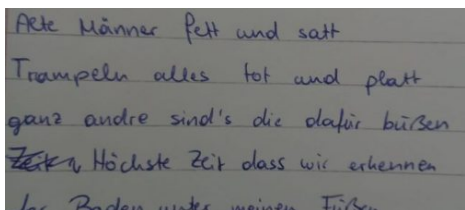 Alte Männer fett und satt
Trampeln alles tot und platt
ganz andre sind's die dafür büßen
Höchste Zeit dass wir erkennen
der Boden unter meinen Füßen